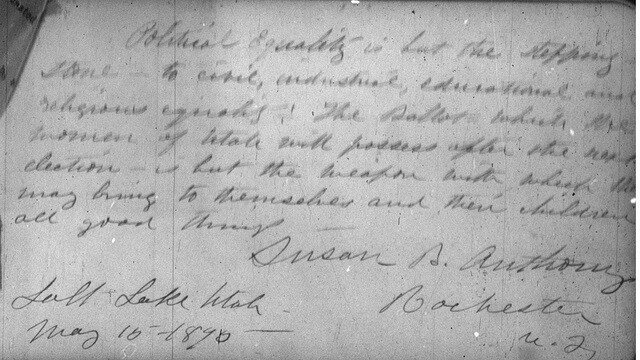 Political Equality is but the stepping
stone — to civil, industrial, educational and
religious equality! The Ballot which the
women of Utah will possess after the next
election — is but the weapon with which they
may bring to themselves and their children
all good things
Susan B. Anthony
Rochester
N.Y.
Salt Lake Utah
May 15 - 1895